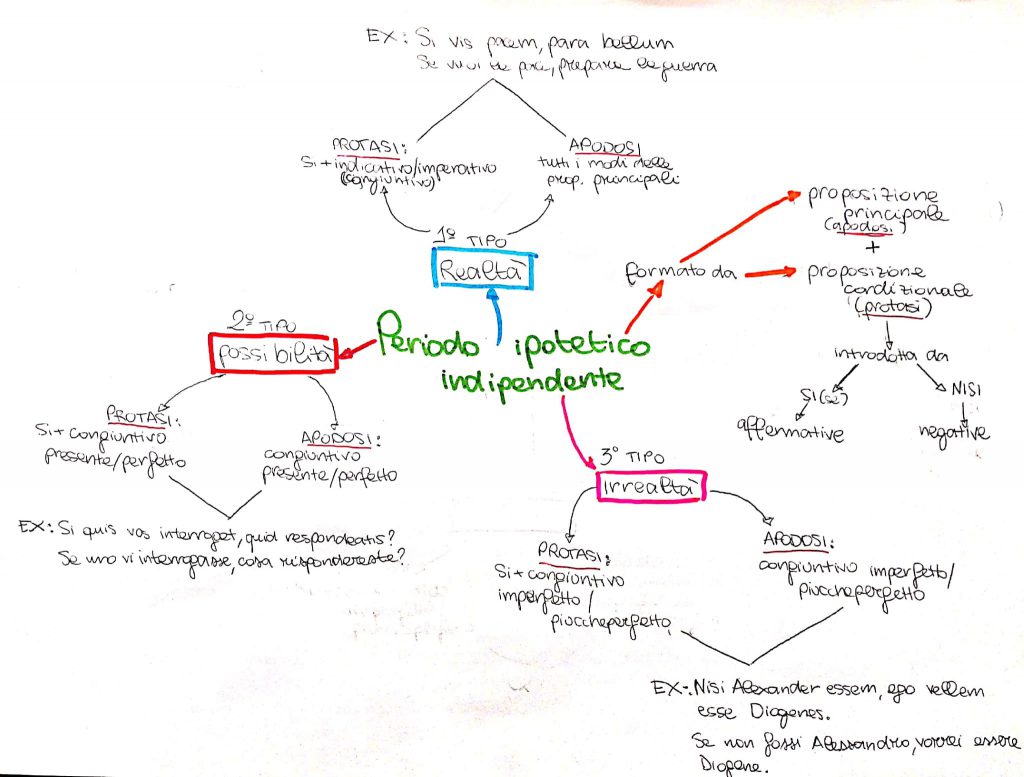 EX: Si vis pacem, para bellum
Se vuoi la pace, prepara la guerra
PROTASI:
Si + indicativo/imperativo
(congiuntivo)
APODOSI
tutti i modi delle
prop. principali
1º TIPO
Realtà
formato da
proposizione
principale
(apodosi)
+
proposizione
condizionale
(protasi)
introdotta da
SI (se)
NISI
affermative
negative
Periodo ipotetico
indipendente
2º TIPO
possibilità
PROTASI:
Si + congiuntivo
presente/perfetto
APODOSI:
congiuntivo
presente/perfetto
EX: Si quis vos interroget, quid respondeatis?
Se uno vi interrogasse, cosa rispondereste?
3º TIPO
irrealtà
PROTASI:
Si + congiuntivo
imperfetto/
piuccheperfetto
APODOSI:
congiuntivo imperfetto/
piuccheperfetto
EX: Nisi Alexander essem, ego vellem
esse Diogenes.
Se non fossi Alessandro, vorrei essere
Diogene.